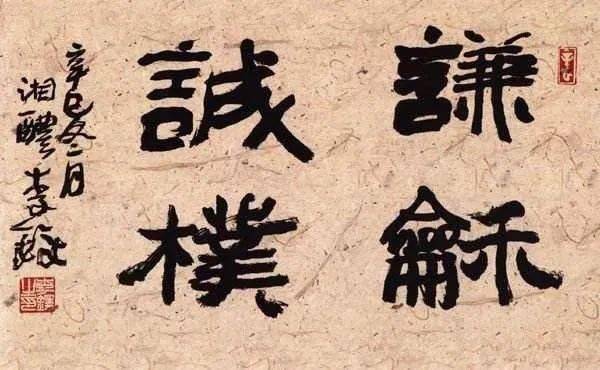 謙龢
誠樸
辛巳二月
湘醴李鐸